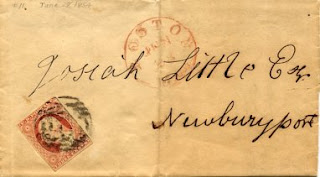 June
BOSTON
Josiah Little Esq
Newburyport